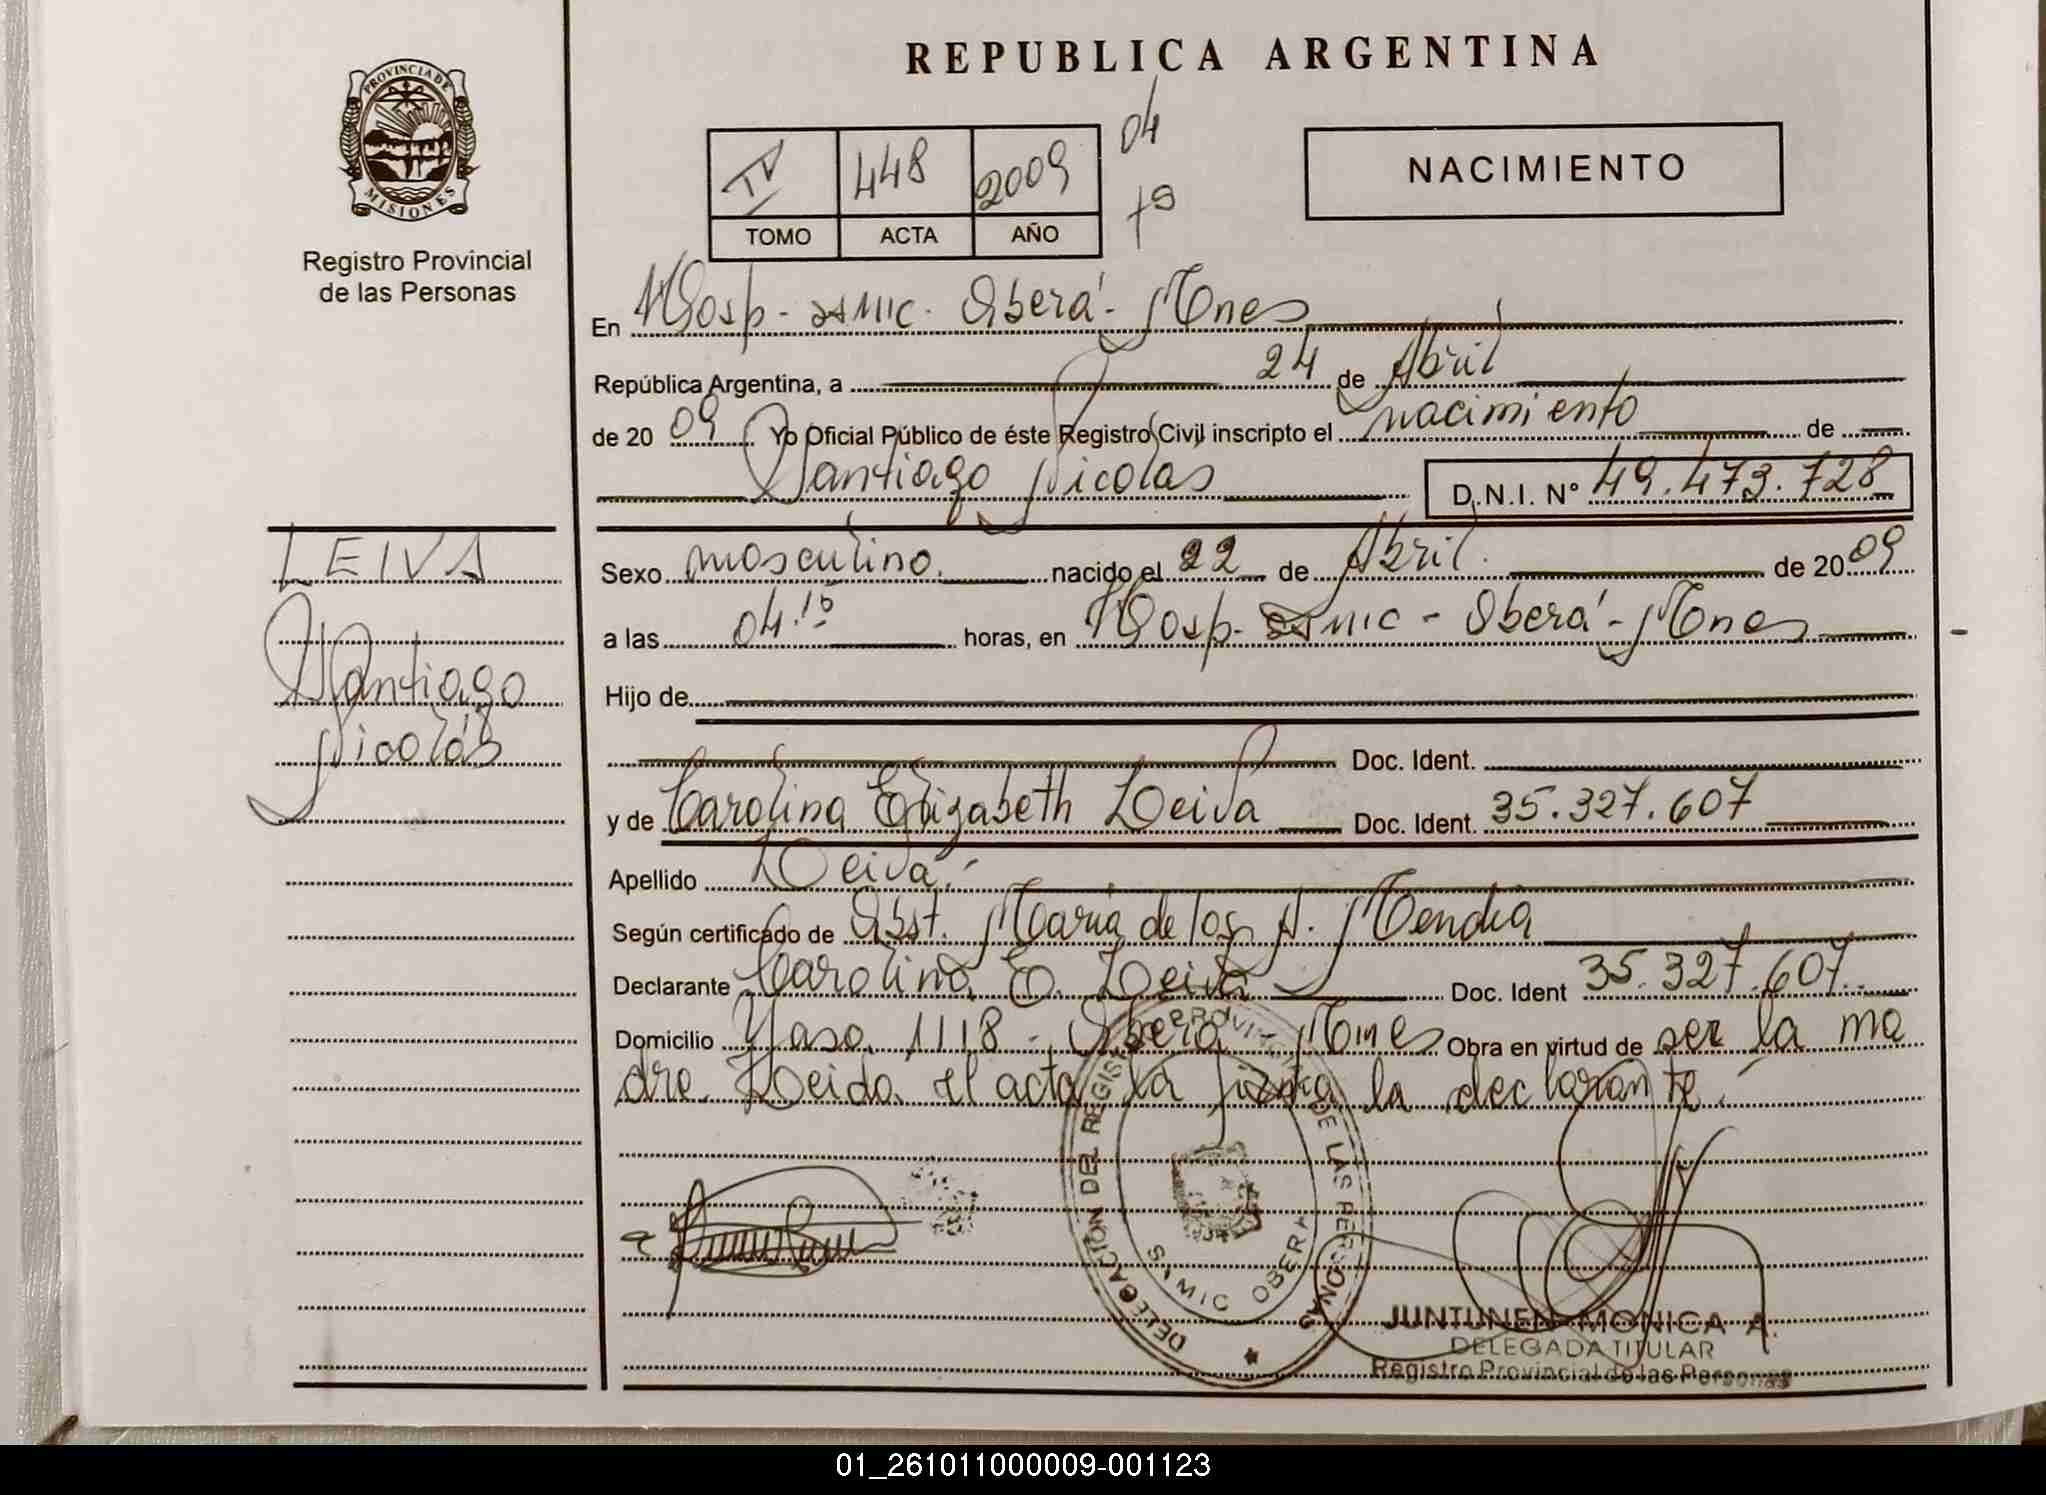 REPUBLICA ARGENTINA
PROVINCIA DE
MISIONES
Registro Provincial
de las Personas
IV 448 2009 04
TOMO ACTA AÑO
NACIMIENTO
En Hosp. SAMIC. Oberá - Mnes
República Argentina, a 24 de Abril
de 20 09 Yo Oficial Público de éste Registro Civil inscripto el nacimiento de
Santiago Nicolás D.N.I. N° 49.473.728
LEIVA
Santiago
Nicolás
Sexo masculino. nacido el 22 de Abril. de 20 09
a las 04.15 horas, en Hosp. SAMIC - Oberá - Mnes
Hijo de
Doc. Ident.
y de Carolina Elizabeth Leiva Doc. Ident. 35.327.607
Apellido Leiva.
Según certificado de Obst. María de los A. Mendia
Declarante Carolina E. Leiva Doc. Ident 35.327.607.
Domicilio 1118 - Oberá - Mnes Obra en virtud de ser la ma
dre. Leida el acta la firma la declarante.
DELEGACIÓN DEL REGISTRO PROVINCIAL DE LAS PERSONAS
SAMIC OBERA
JUNTUNEN MONICA A.
DELEGADA TITULAR
Registro Provincial de las Personas
01_261011000009-001123